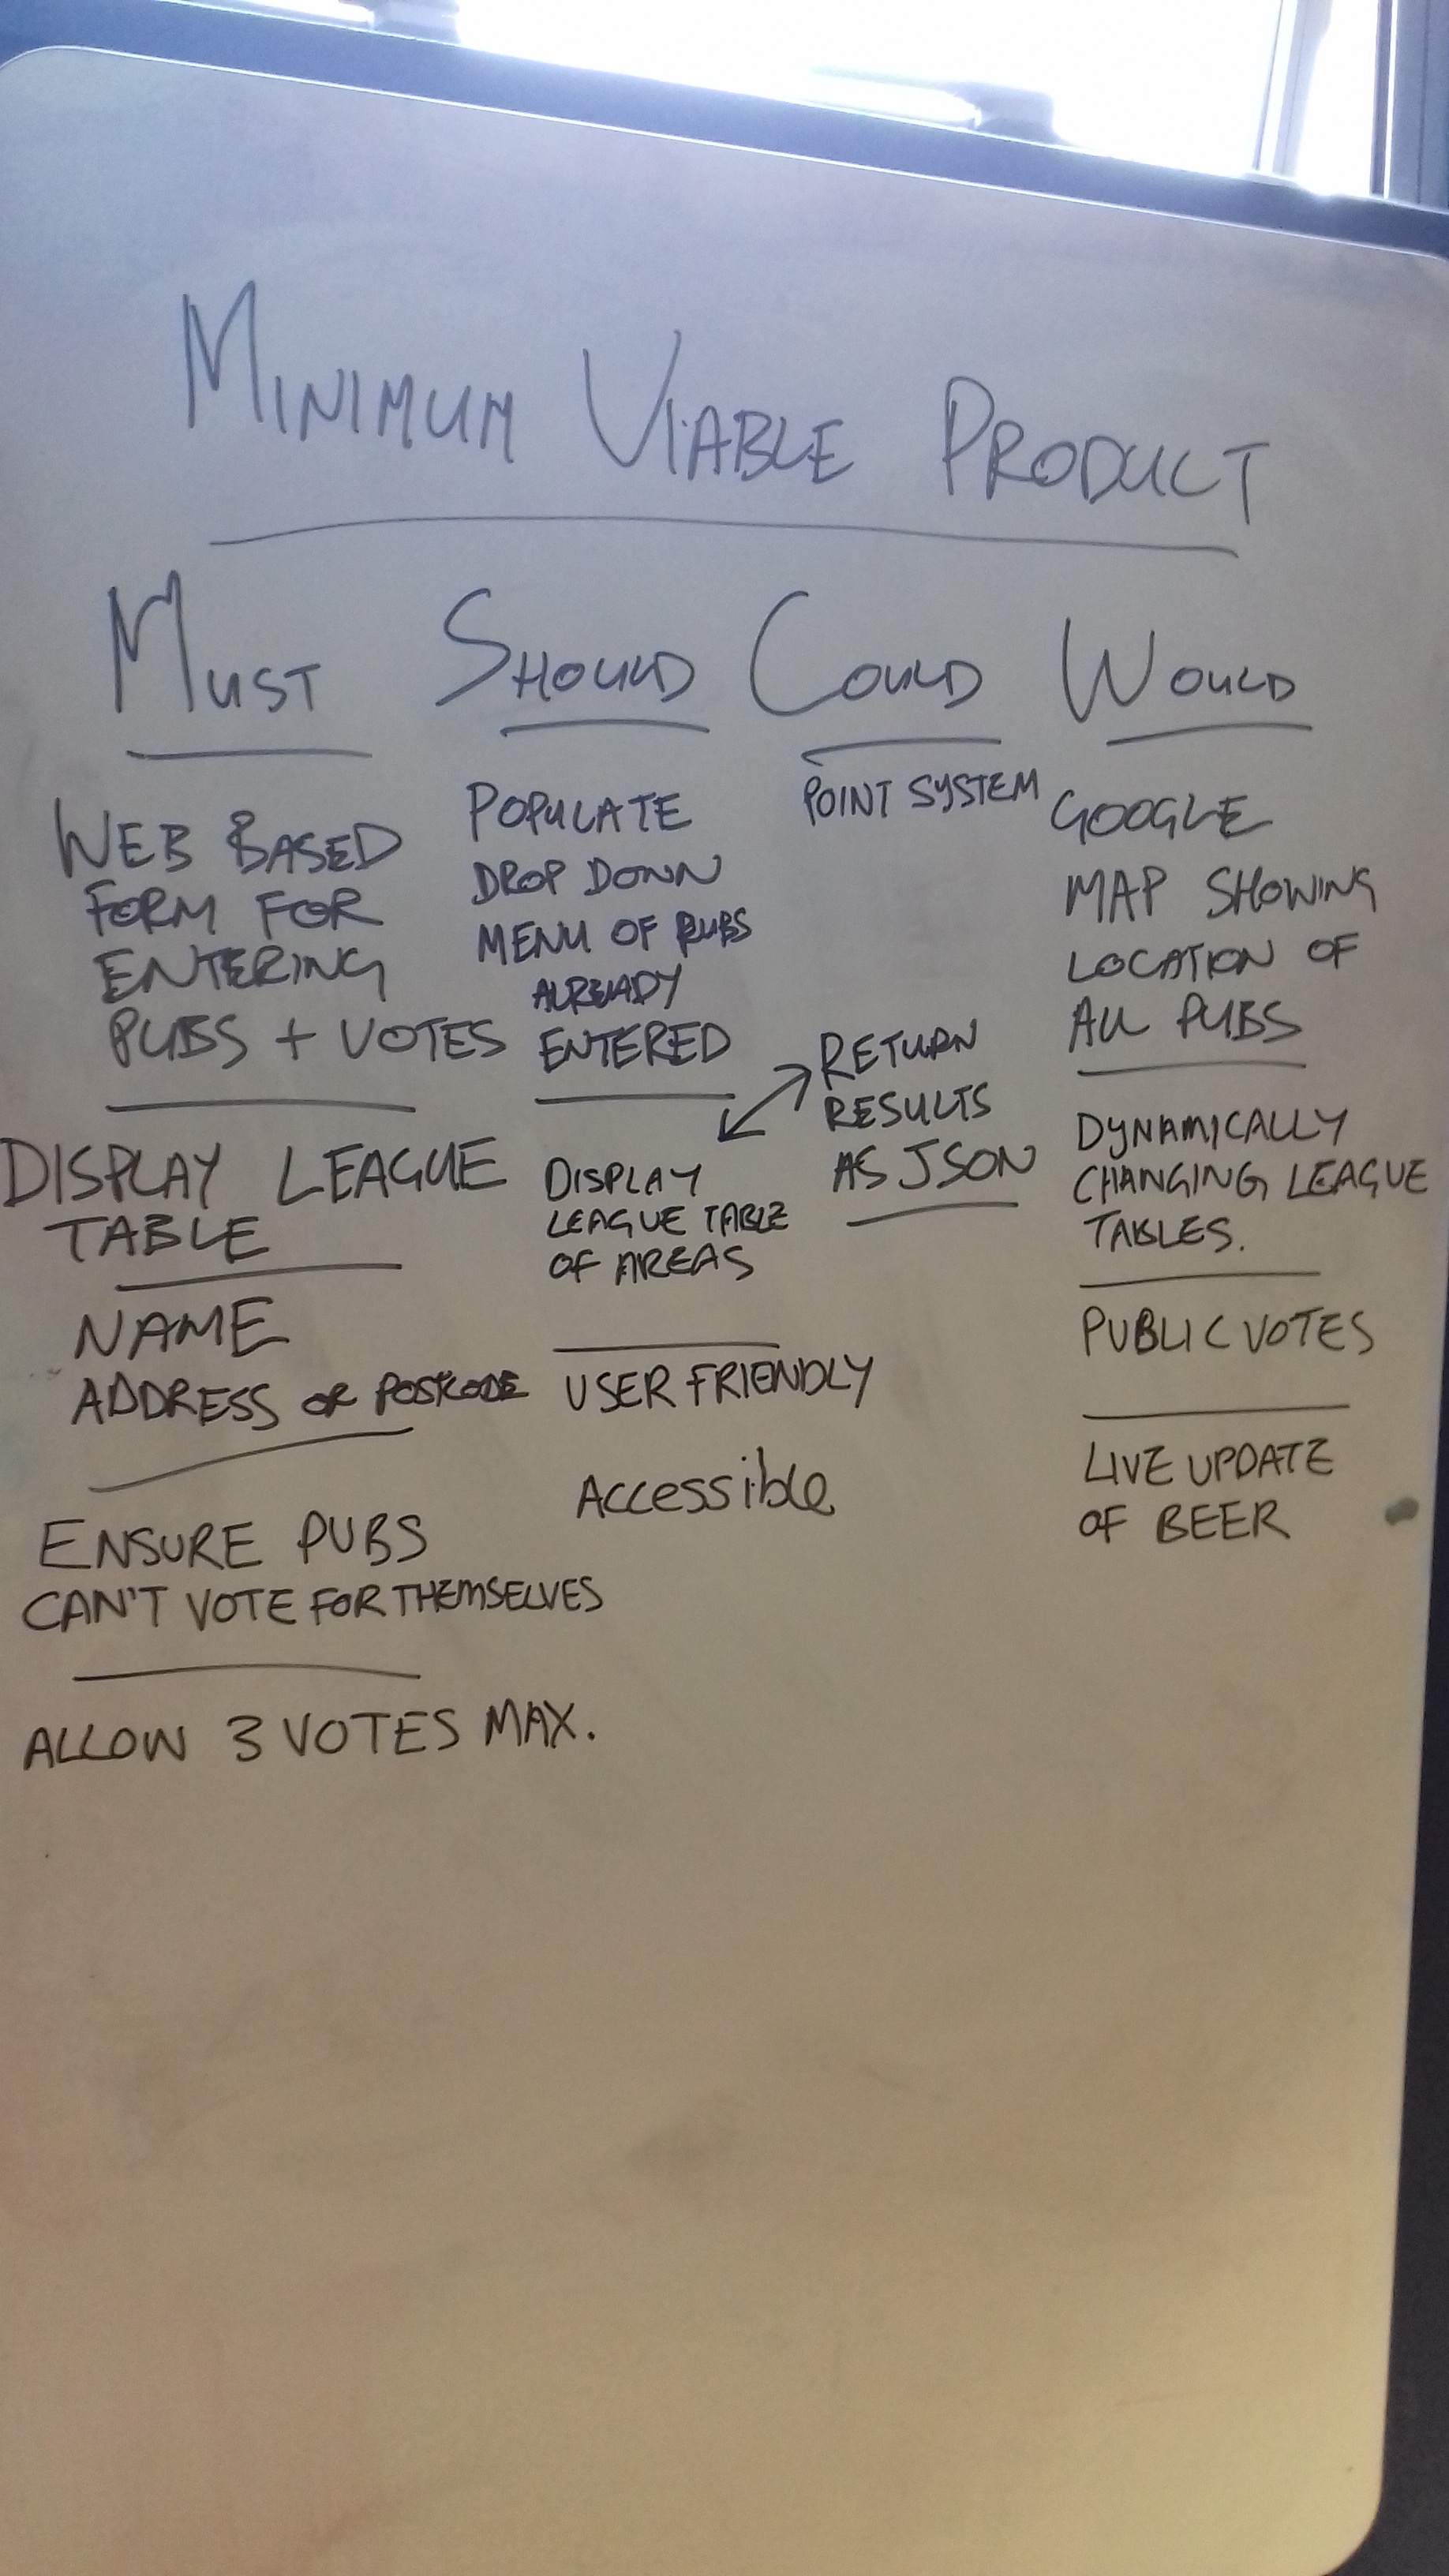 MINIMUM VIABLE PRODUCT
MUST
WEB BASED
FORM FOR
ENTERING
PUBS + VOTES
DISPLAY LEAGUE
TABLE
NAME
ADDRESS OR POSTCODE
ENSURE PUBS
CAN'T VOTE FOR THEMSELVES
ALLOW 3 VOTES MAX.
SHOULD
POPULATE
DROP DOWN
MENU OF PUBS
ALREADY
ENTERED
DISPLAY
LEAGUE TABLE
OF AREAS
USER FRIENDLY
Accessible
COULD
POINT SYSTEM
RETURN
RESULTS
AS JSON
WOULD
GOOGLE
MAP SHOWING
LOCATION OF
ALL PUBS
DYNAMICALLY
CHANGING LEAGUE
TABLES.
PUBLIC VOTES
LIVE UPDATE
OF BEER